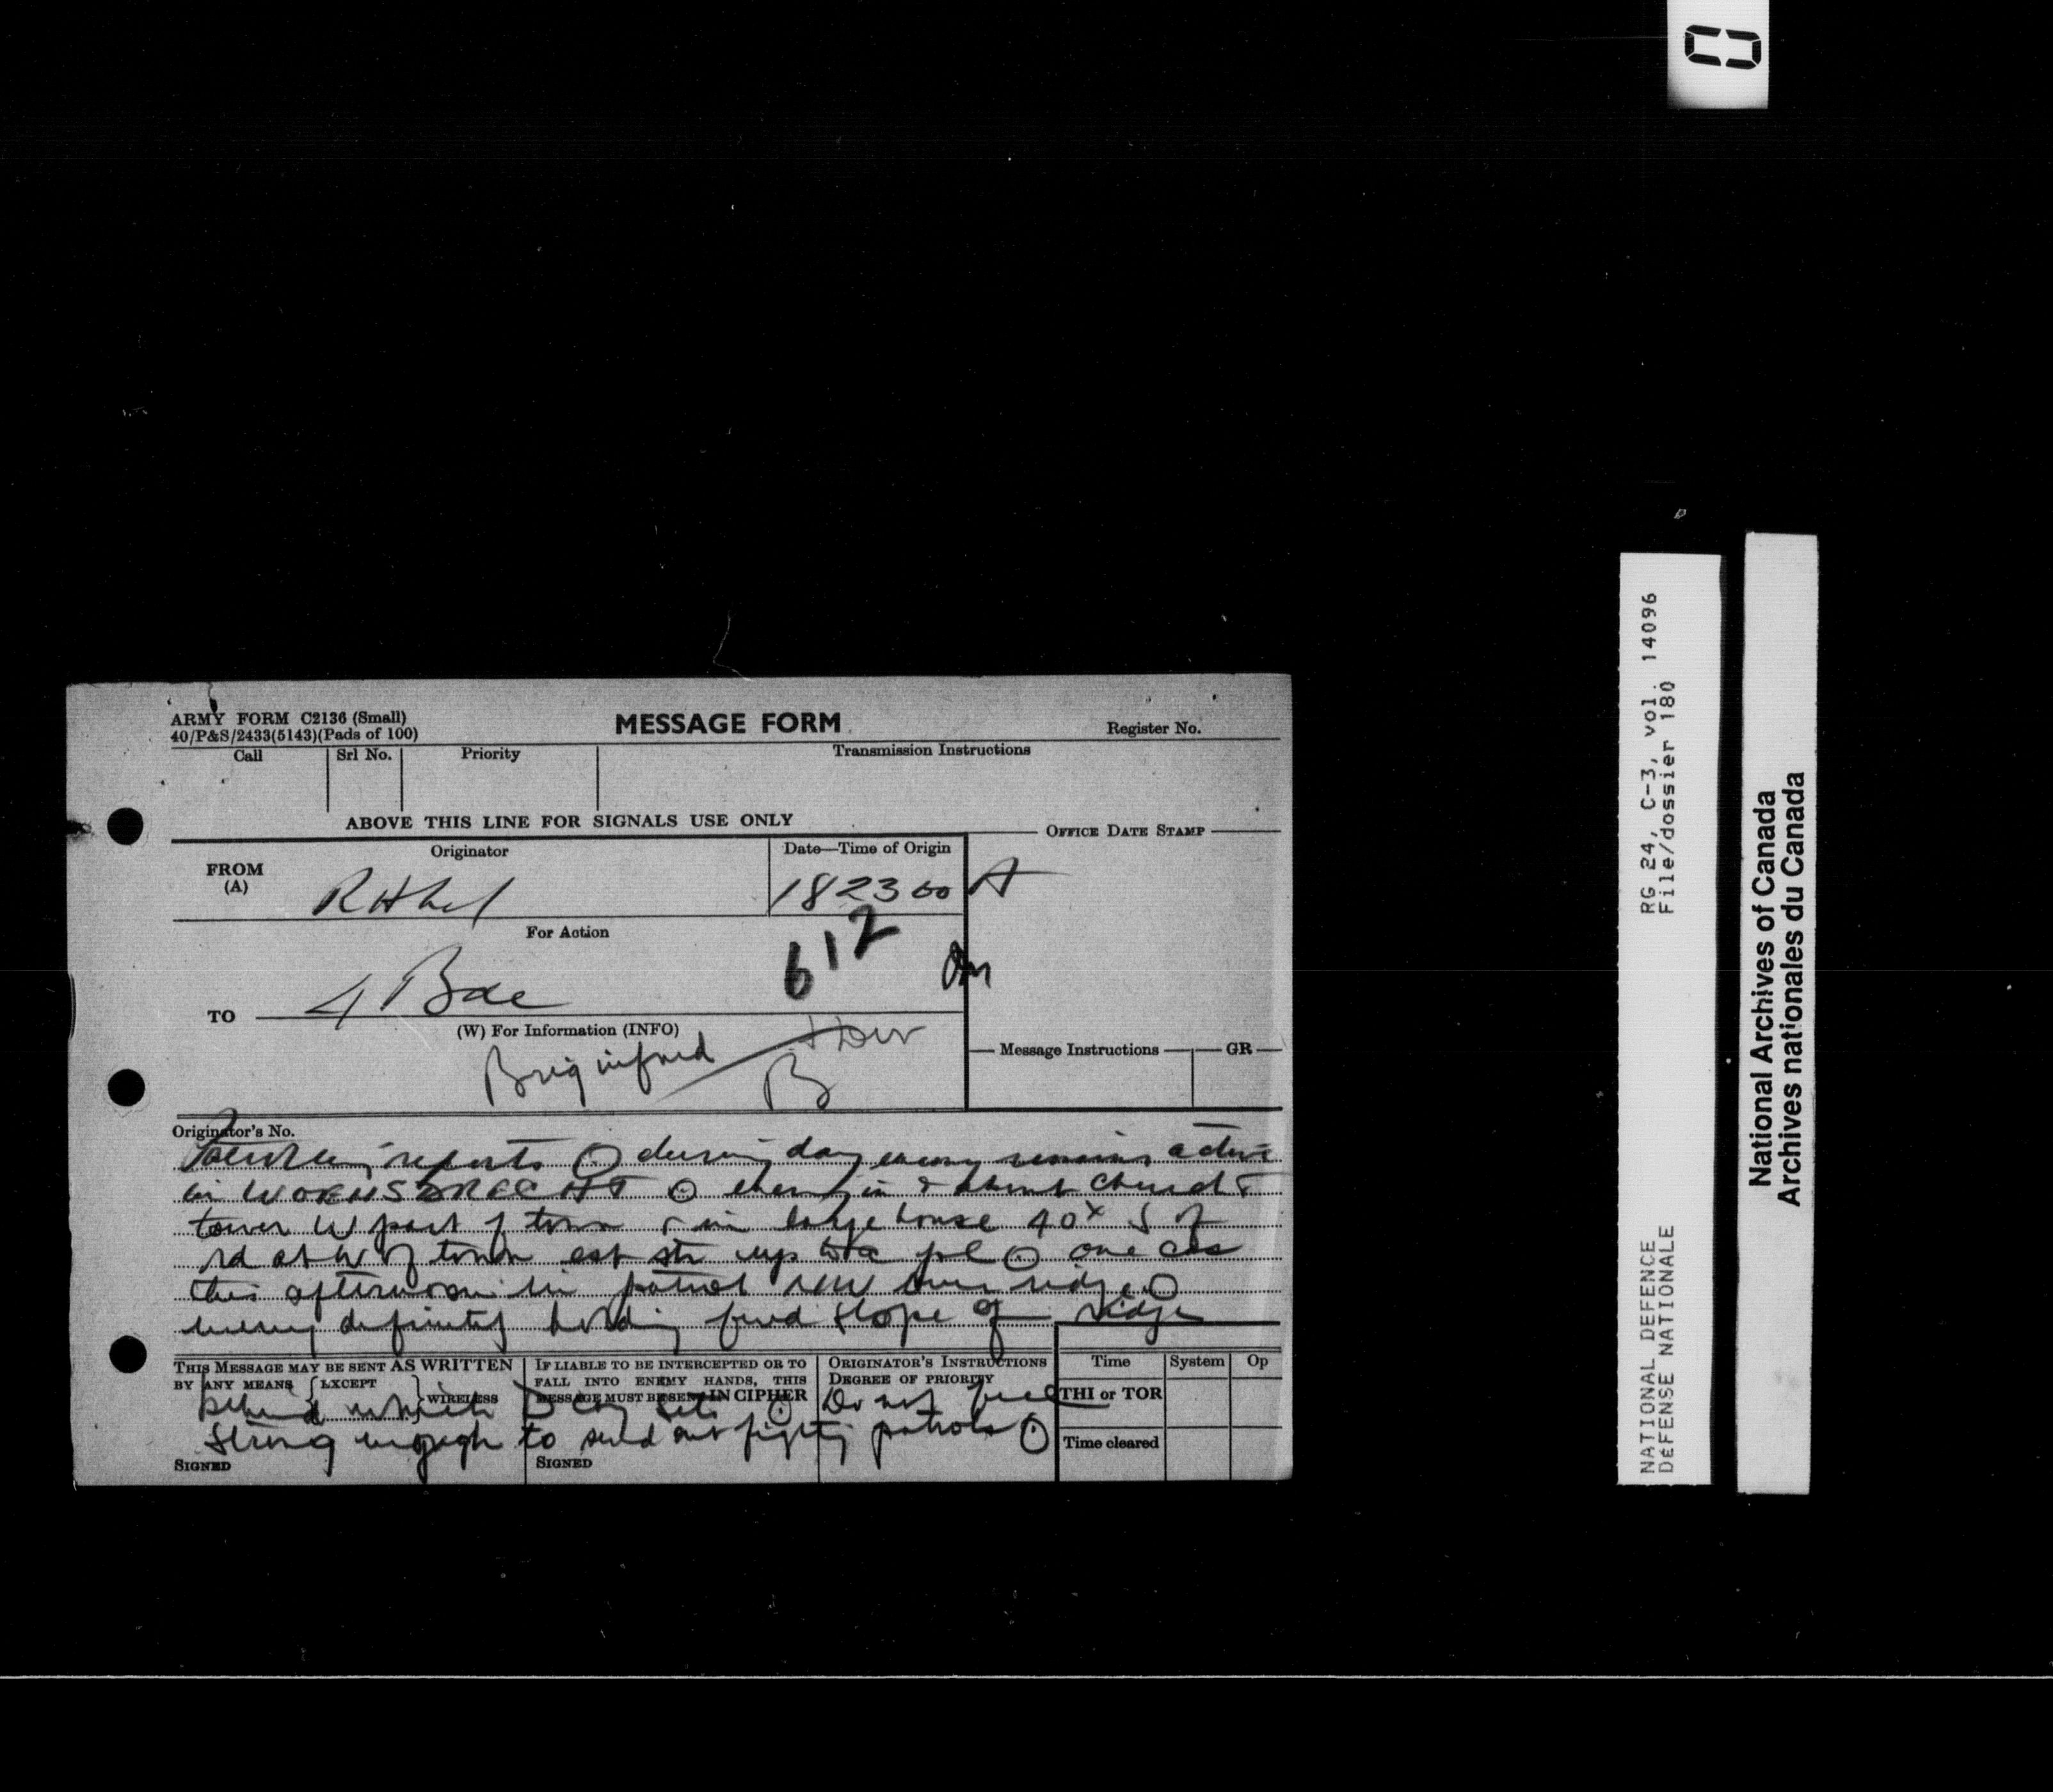 ARMY FORM C2136 (Small)
40/P&S/2433(5143)(Pads of 100)
MESSAGE FORM
Register No.
Call
Srl No.
Priority
Transmission Instructions
ABOVE THIS LINE FOR SIGNALS USE ONLY
OFFICE DATE STAMP
FROM
(A)
Originator
Date—Time of Origin
182300 A
For Action
612
TO
4 Bde
(W) For Information (INFO)
Brig informed
Div
B
Message Instructions
GR
Originator's No.
reports during day enemy remains active
in WOENSDRECHT enemy in & about church &
tower W part of town & in large house 40x S of
rd at W of town est str up to a pl one cas
this afternoon in patrol over ridge
enemy definitely holding fwd slope of ridge
THIS MESSAGE MAY BE SENT AS WRITTEN
BY ANY MEANS {EXCEPT} WIRELESS
IF LIABLE TO BE INTERCEPTED OR TO
FALL INTO ENEMY HANDS, THIS
MESSAGE MUST BE SENT IN CIPHER
ORIGINATOR'S INSTRUCTIONS
DEGREE OF PRIORITY
Time
System
Op
THI or TOR
Time cleared
behind which D Coy sits Do not feel
strong enough to send out fighting patrols
SIGNED
SIGNED
RG 24, C-3, vol. 14096
File/dossier 180
NATIONAL DEFENCE
DéFENSE NATIONALE
National Archives of Canada
Archives nationales du Canada